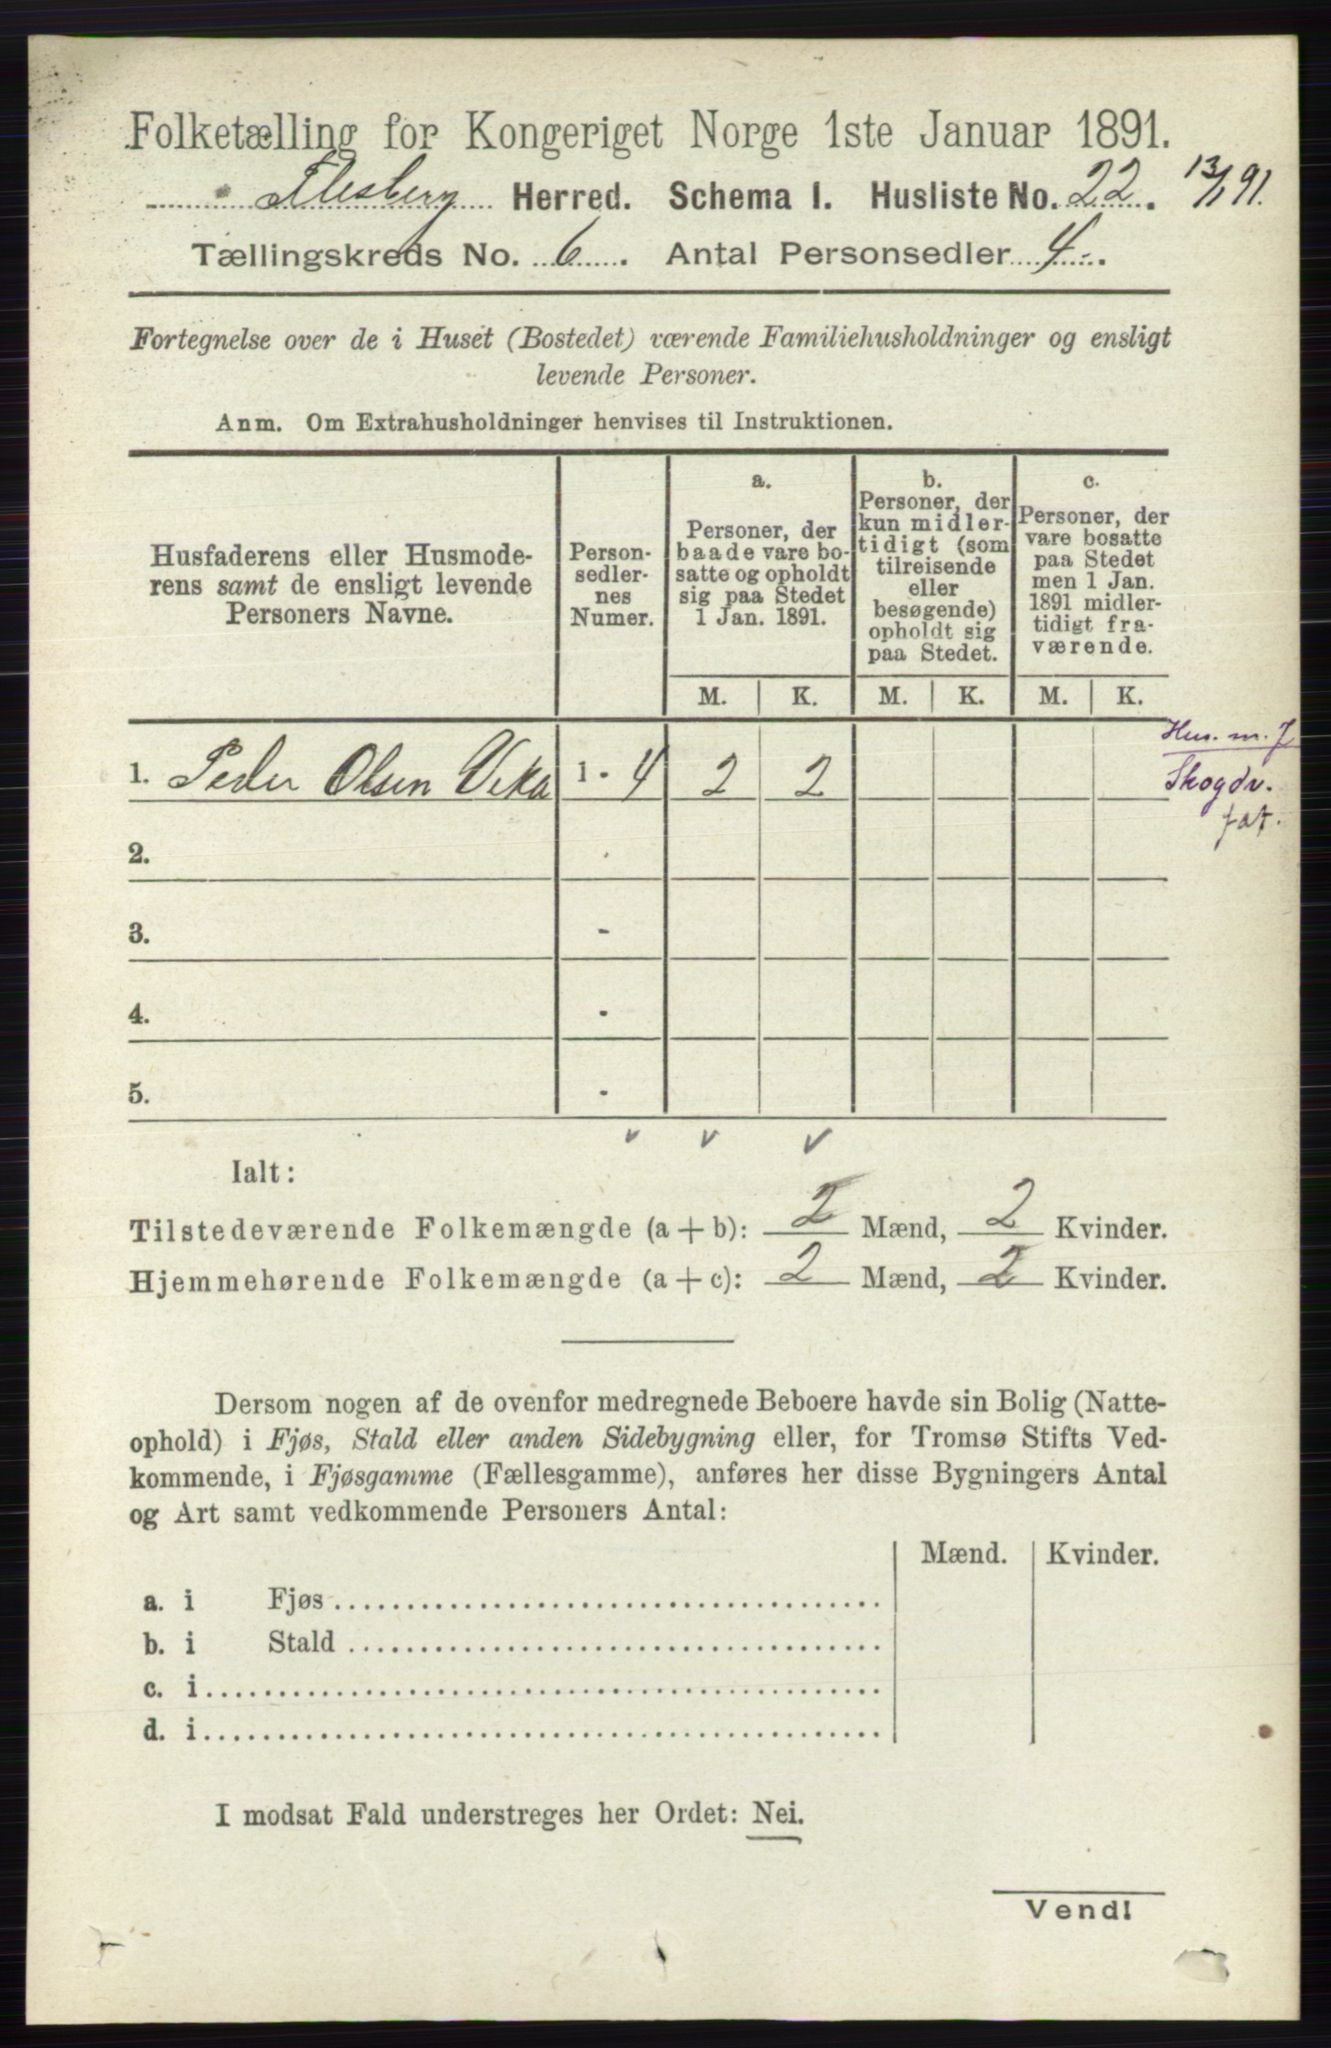 Folketælling for Kongeriget Norge 1ste Januar 1891.
Flesberg Herred. Schema I. Husliste No. 22. 13/1 91.
Tællingskreds No. 6. Antal Personsedler 4.
Fortegnelse over de i Huset (Bostedet) værende Familiehusholdninger og ensligt
levende Personer.
Anm. Om Extrahusholdninger henvises til Instruktionen.
Husfaderens eller Husmode-
rens samt de ensligt levende
Personers Navne.
Person-
sedler-
nes
Numer.
a.
Personer, der
baade vare bo-
satte og opholdt
sig paa Stedet
1 Jan. 1891.
b.
Personer, der
kun midler-
tidigt (som
tilreisende
eller
besøgende)
opholdt sig
paa Stedet.
c.
Personer, der
vare bosatte
paa Stedet
men 1 Jan.
1891 midler-
tidigt fra-
værende.
M. K. M. K. M. K.
Hus. m. J
1. Peder Olsen Veka 1 - 4 2 2
Skogdv.
fat.
2.
3. -
4. -
5. -
v v v
Ialt:
Tilstedeværende Folkemængde (a + b): 2 Mænd, 2 Kvinder.
Hjemmehørende Folkemængde (a + c): 2 Mænd, 2 Kvinder.
Dersom nogen af de ovenfor medregnede Beboere havde sin Bolig (Natte-
ophold) i Fjøs, Stald eller anden Sidebygning eller, for Tromsø Stifts Ved-
kommende, i Fjøsgamme (Fællesgamme), anføres her disse Bygningers Antal
og Art samt vedkommende Personers Antal:
Mænd. Kvinder.
a. i Fjøs
b. i Stald
c. i
d. i
I modsat Fald understreges her Ordet: Nei.
Vend!